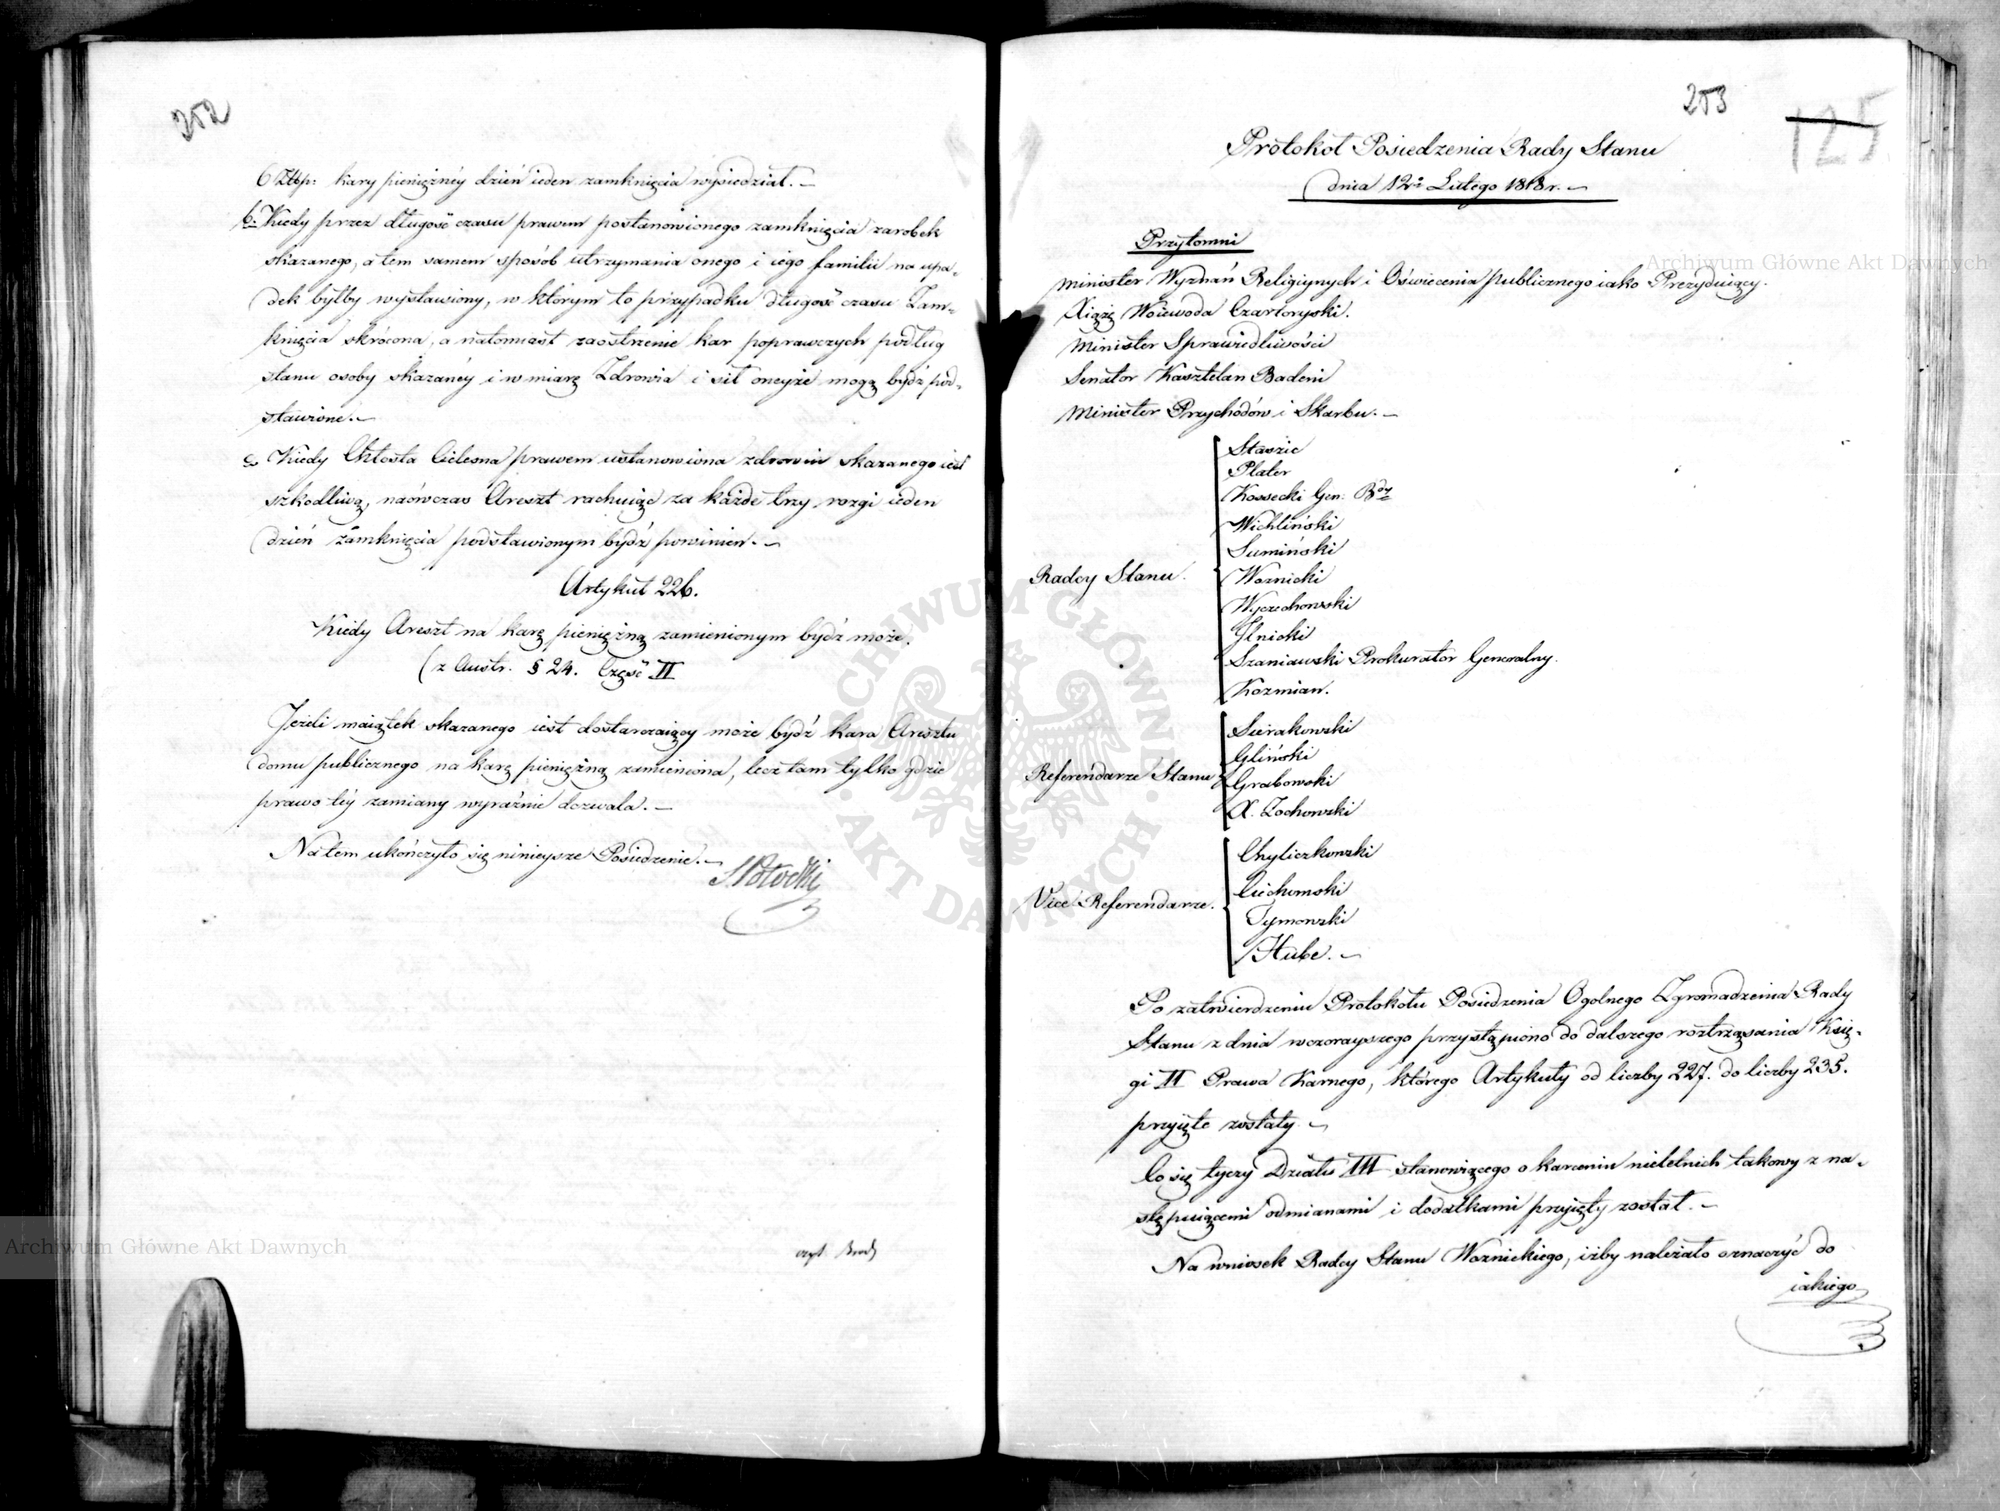 252
6 Złłp: kary pieniężnéy dzień ieden zamknięcia wysiedział. –
b. Kiedy przez długość czasu prawem postanowionego zamknięcia zarobek
skazanego, a tem samem sposób utrzymania onego i iego familii na upa-
dek byłby wystawiony, w którym to przypadku długość czasu Zam-
knięcia skrócona, a natomiast zaostrzenie kar poprawczych podług
stanu osoby skazanéy i w miarę Zdrowia i sił oneyże mogą bydź pod-
stawione. –
c. Kiedy Chłosta Cielesna prawem ustanowiona zdrowiu skazanego iest
szkodliwą, naówczas Areszt rachuiąc za każde trzy rozgi ieden
dzień zamknięcia podstawionym bydź powinien. –
Artykuł 226.
Kiedy Areszt na karę pieniężną zamienionym bydź może.
(z Austr. § 24. Część II
Jeżeli maiątek skazanego iest dostarczaiący może bydź kara Aresztu
domu publicznego na karę pieniężną zamieniona, lecz tam tylko gdzie
prawo téy zamiany wyraźnie dozwala. –
Na tem ukończyło się ninieysze Posiedzenie. –
S Potocki
253
125
Protokół Posiedzenia Rady Stanu
dnia 12º Lutego 1818 r. –
Przytomni
Minister Wyznań Religiynych i Oświecenia publicznego iako Prezyduiący.
Xiążę Woiewoda Czartoryski.
Minister Sprawiedliwości
Senator Kasztelan Badeni
Minister Przychodów i Skarbu. –
Radcy Stanu.
Staszic
Plater
Kossecki Gen: Bdy
Wichliński
Sumiński
Woznicki
Wyczechowski
Jlnicki
Szaniawski Prokurator Generalny.
Kozmian.
Referendarze Stanu
Sierakowski
Gliński
Grabowski
X. Zochowski
Vice Referendarze.
Chyliczkowski
Ciechomski
Tymowski
Hube. –
Po zatwierdzeniu Protokołu Posiedzenia Ogolnego Zgromadzenia Rady
Stanu z dnia wczorayszego przystąpiono do dalszego roztrząsania Księ-
gi II Prawa Karnego, którego Artykuły od liczby 227. do liczby 235.
przyięte zostały. –
Co się tyczy Działu III stanowiącego o karceniu nieletnich takowy z na-
stępuiącemi odmianami i dodatkami przyięty został. –
Na wniosek Radcy Stanu Woznickiego, iżby należało oznaczyć do
iakiego
Archiwum Główne Akt Dawnych
Archiwum Główne Akt Dawnych
ARCHIWUM GŁÓWNE AKT DAWNYCH